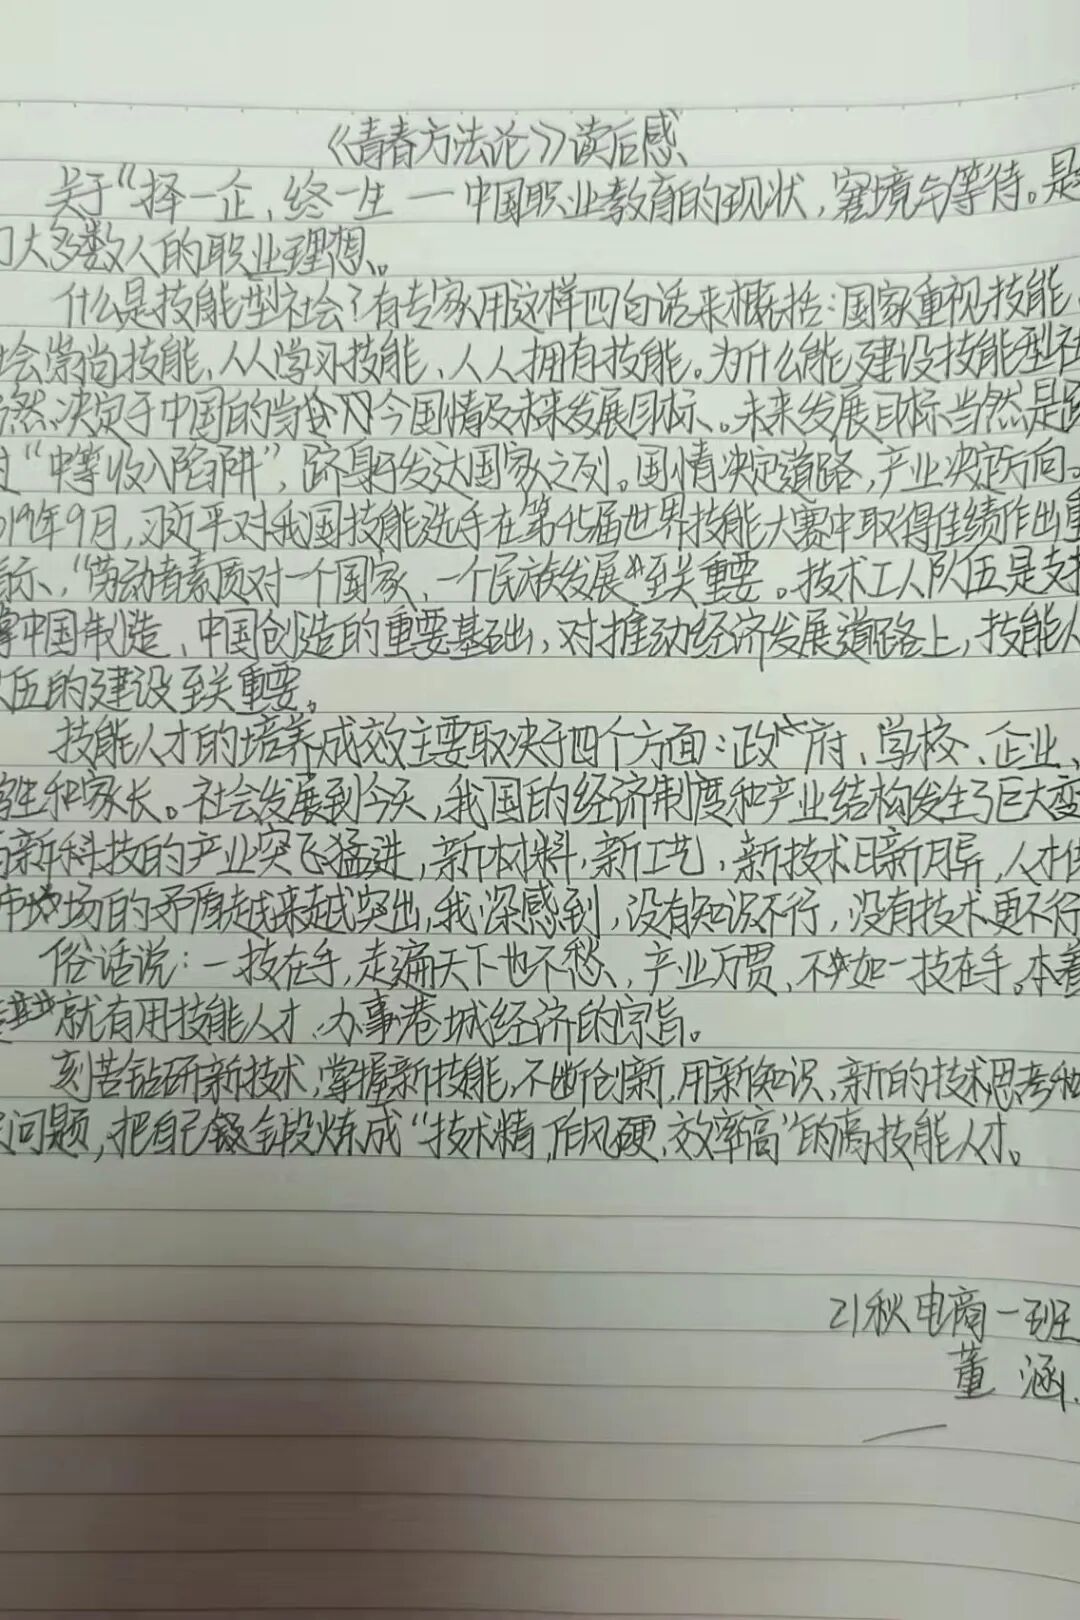 《青春方法论》读后感
关于“择一企,终一生一中国职业教育的现状,窘境与等待。是
们大多数人的职业理想。
什么是技能型社会?有专家用这样四句话来概括:国家重视技能,
会崇尚技能、人人学习技能、人人拥有技能。为什么能建设技能型社
然决定于中国的当今国情及未来发展目标、。未来发展目标当然是
过“中等收入陷阱”,跻身发达国家之列。国情决定道路,产业决定方向。
019年9月,习近平对我国技能选手在第45届世界技能大赛中取得佳绩作出重
指示、“劳动者素质对一个国家、一个民族发展至关重要。技术工人队伍是支
撑中国制造、中国创造的重要基础,对推动经济发展道路上,技能人
队伍的建设至关重要。
技能人才的培养成效主要取决于四个方面:政府、学校、企业、
学生和家长。社会发展到今天,我国的经济制度和产业结构发生了巨大变
高新科技的产业突飞猛进,新材料,新工艺,新技术日新月异,人才供
市场的矛盾越来越突出,我深感到,没有知识不行,没有技术更不行
俗话说:一技在手,走遍天下也不愁、产业万贯,不如一技在手。本着
就有用技能人才、办事港城经济的宗旨。
刻苦钻研新技术,掌握新技能,不断创新,用新知识,新的技术思考和
问题,把自己锻炼成“技术精,作风硬,效率高”的高技能人才。
21秋电商一班
董 涵